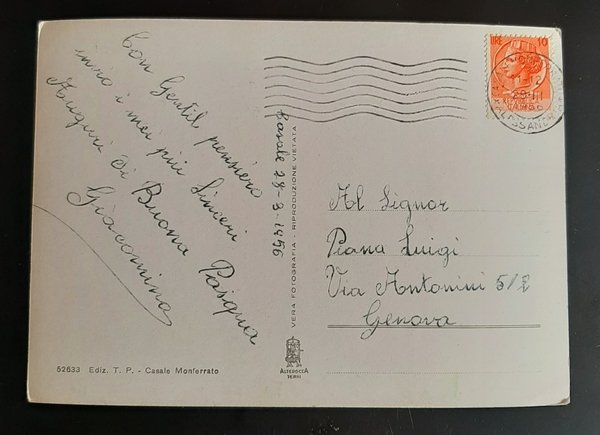 Con Gentil pensiero
invio i miei più Sinceri
Auguri di Buona Pasqua
Giacomina
Casale 28-3-1956
VERA FOTOGRAFIA - RIPRODUZIONE VIETATA
LIRE 10
Al Signor
Piana Luigi
Via Antonini 5/2
Genova
52633 Ediz. T. P. - Casale Monferrato
ALTEROCCA
TERNI